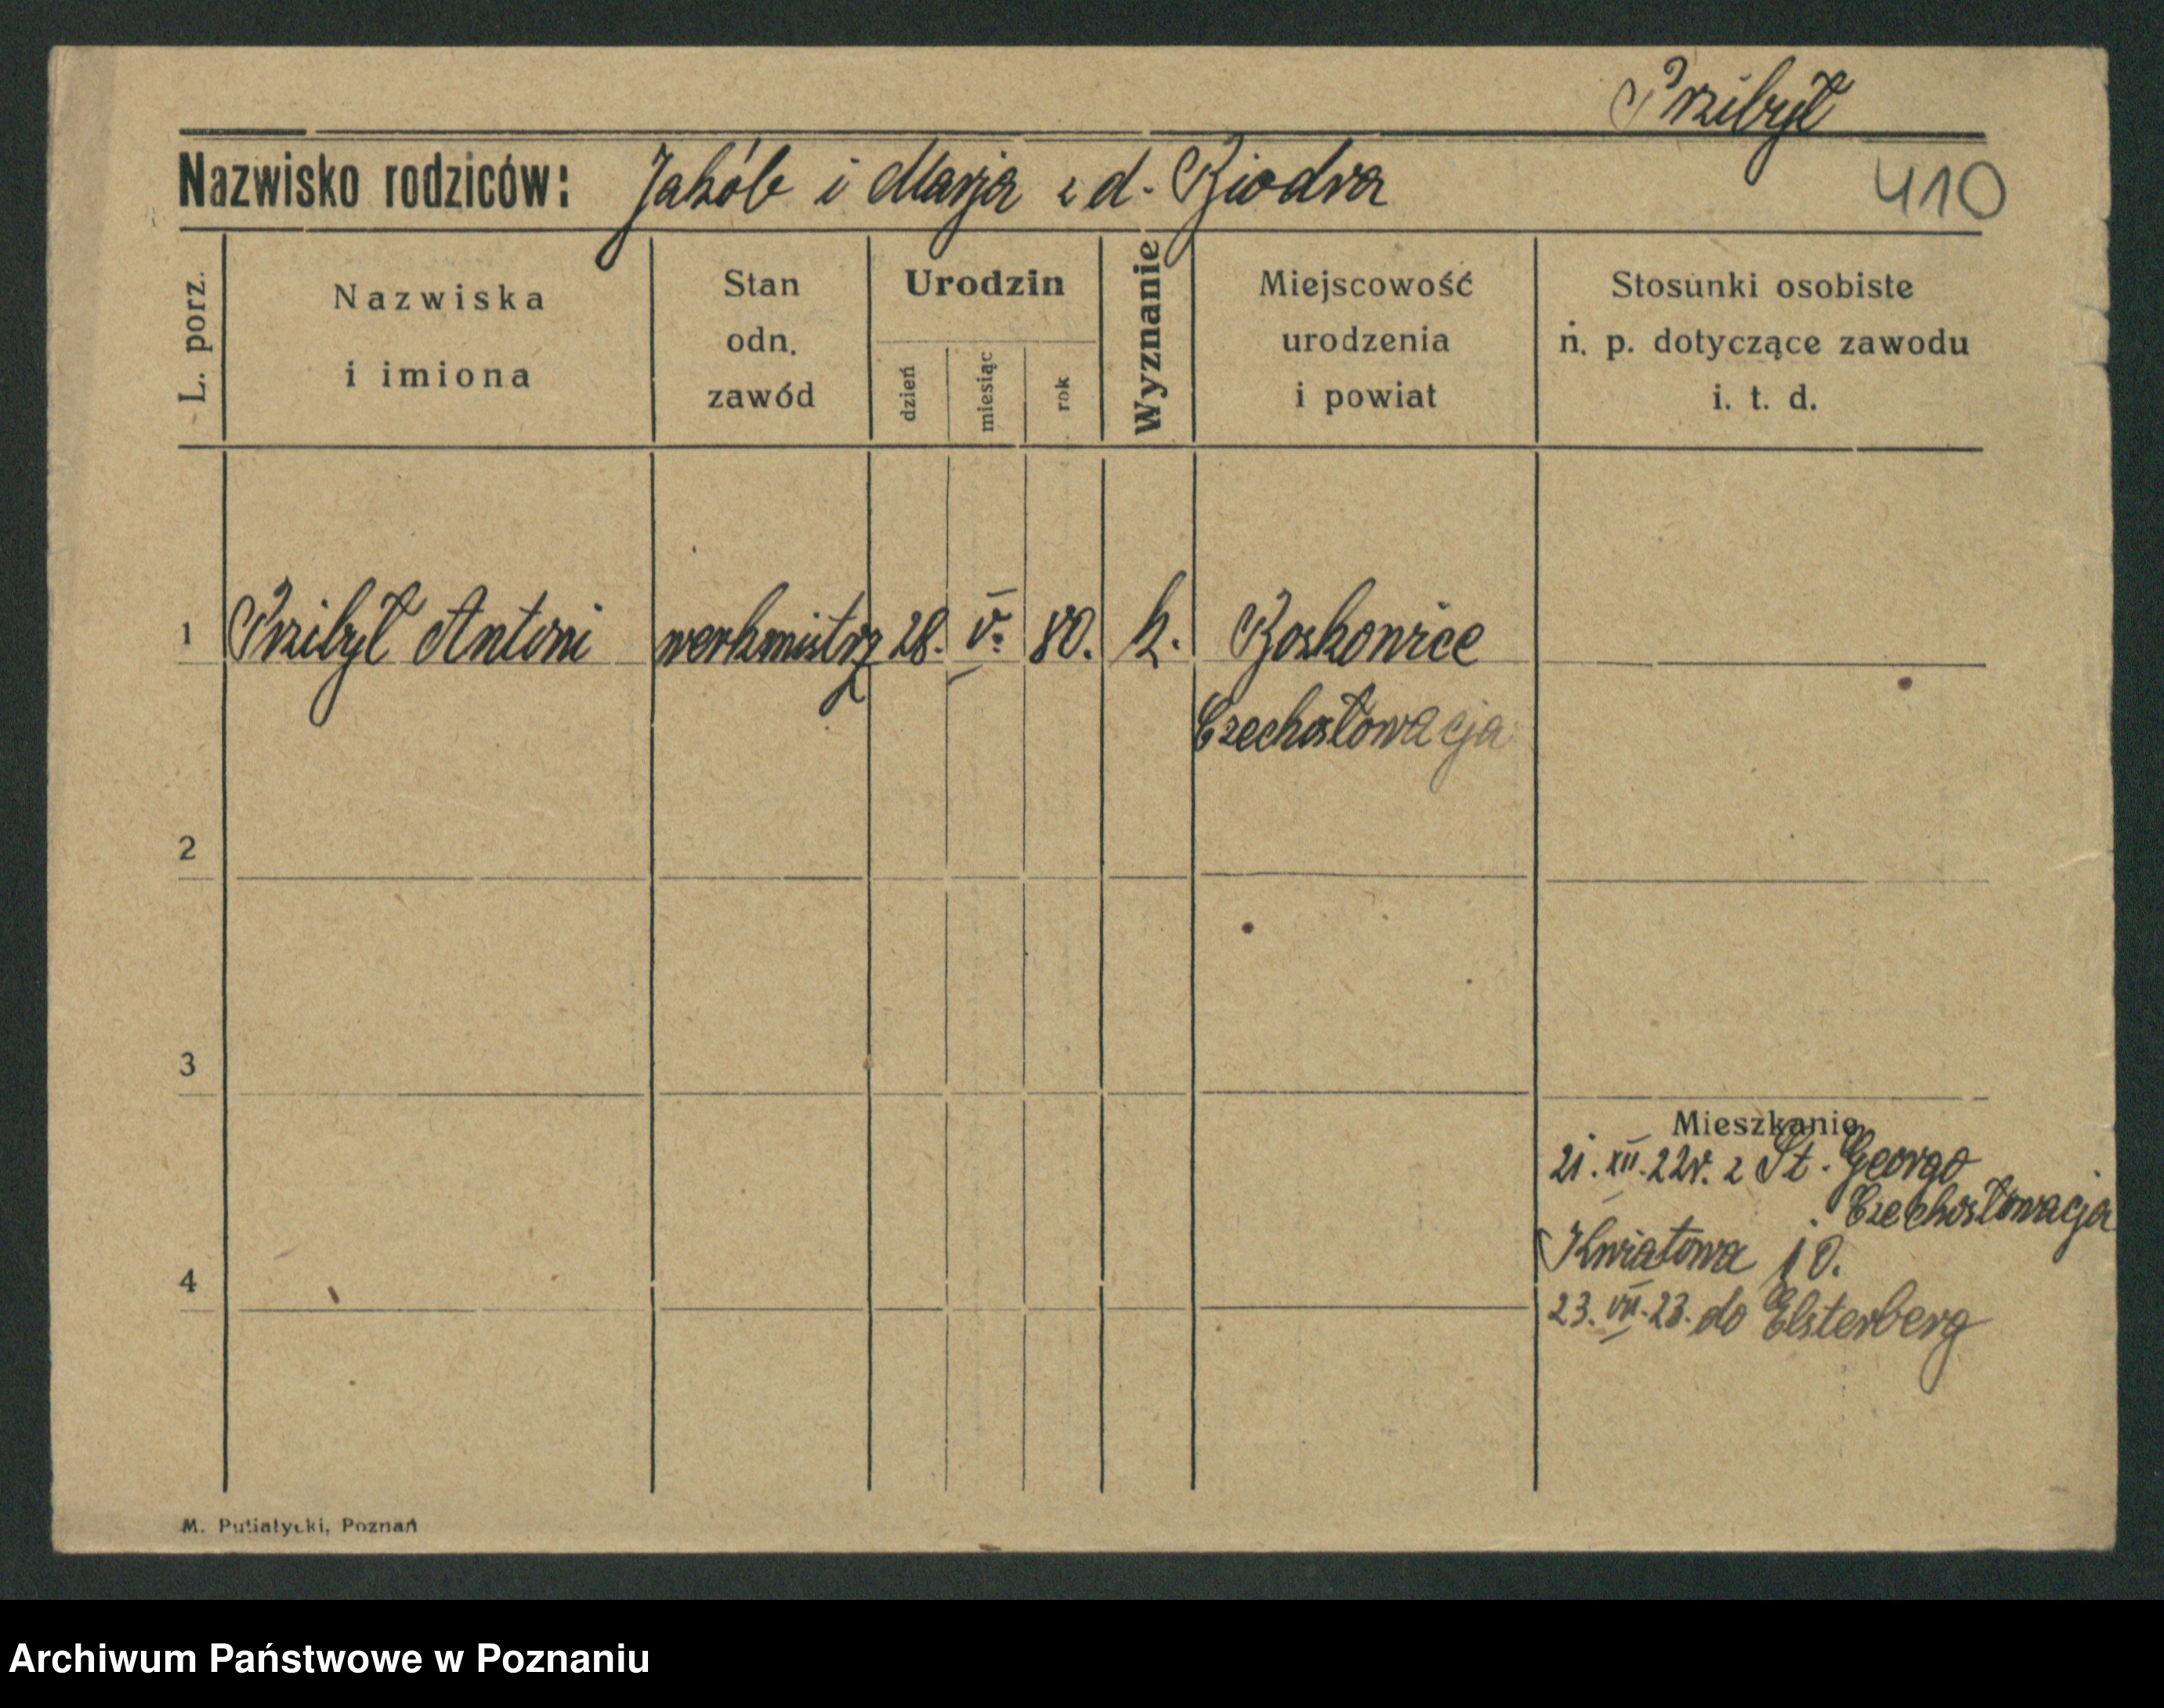 Przibył
Nazwisko rodziców: Jakób i Marja z d. Biodra
410
L. porz.
Nazwiska
i imiona
Stan
odn.
zawód
Urodzin
dzień
miesiąc
rok
Wyznanie
Miejscowość
urodzenia
i powiat
Stosunki osobiste
n. p. dotyczące zawodu
i. t. d.
1 Przibył Antoni werkmistrz 28. V. 80. k. Boskowice
Czechosłowacja
2
3
Mieszkanie
21. XII. 22r. z St. Georgo
Czechosłowacja
Kwiatowa 10.
4
23. VII. 23. do Elsterberg
M. Putiatycki, Poznań
Archiwum Państwowe w Poznaniu